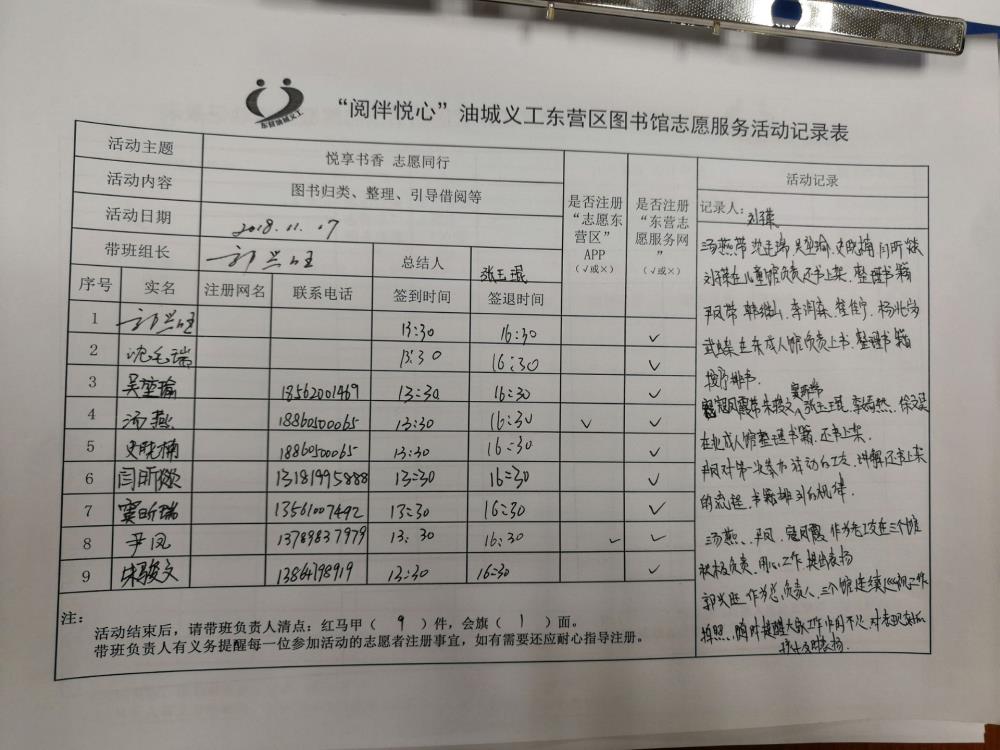 东营油城义工
“阅伴悦心”油城义工东营区图书馆志愿服务活动记录表
活动主题 悦享书香 志愿同行
活动内容 图书归类、整理、引导借阅等
活动日期 2018.11.07
带班组长 郭兴旺 总结人 张玉琨
是否注册“志愿东营区”APP（√或×）
是否注册“东营志愿服务网”（√或×）
序号 实名 注册网名 联系电话 签到时间 签退时间
1 郭兴旺 13:30 16:30 √
2 沈毛瑞 13:30 16:30 √
3 吴堃瑜 18562001469 13:30 16:30 √
4 汤燕 18860500065 13:30 16:30 √ √
5 史晓楠 1886050065 13:30 16:30 √
6 闫昕燚 13181995888 13:30 16:30 √
7 窦昕瑞 13561007492 13:30 16:30 √
8 尹凤 13789837979 13:30 16:30 √ √
9 朱骏文 13864798919 13:30 16:30 √
注：
活动结束后，请带班负责人清点：红马甲（ 9 ）件，会旗（ 1 ）面。
带班负责人有义务提醒每一位参加活动的志愿者注册事宜，如有需要还应耐心指导注册。
活动记录
记录人：刘
汤燕带沈毛瑞 吴堃瑜、史晓楠 闫昕燚
在儿童馆负责还书上架，整理书籍
尹凤带 李润森
在东成人馆负责上书，整理书籍
按序排书.
窦昕瑞
寇凤霞带朱骏文，张玉琨
在北成人馆整理书籍，还书上架.
尹凤对第一次参加活动的义工，讲解还书上架
的流程，书籍排列的规律.
汤燕、尹凤、寇凤霞 作为老义工在三个馆
积极负责，用心工作 提出表扬
郭兴旺作为总负责人，三个馆连续巡视工作
拍照、随时提醒大家工作